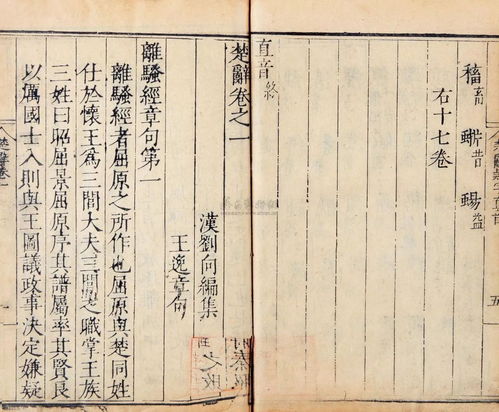 穡畜 蜥昔 蜴益
右十七卷
直音終
楚辭卷之一
漢劉向編集
王逸章句
離騷經章句第一
離騷經者屈原之所作也屈原與楚同姓
仕於懷王爲三閭大夫三閭之職掌王族
三姓曰昭屈景屈原序其譜屬率其賢良
以厲國士入則與王圖議政事決定嫌疑